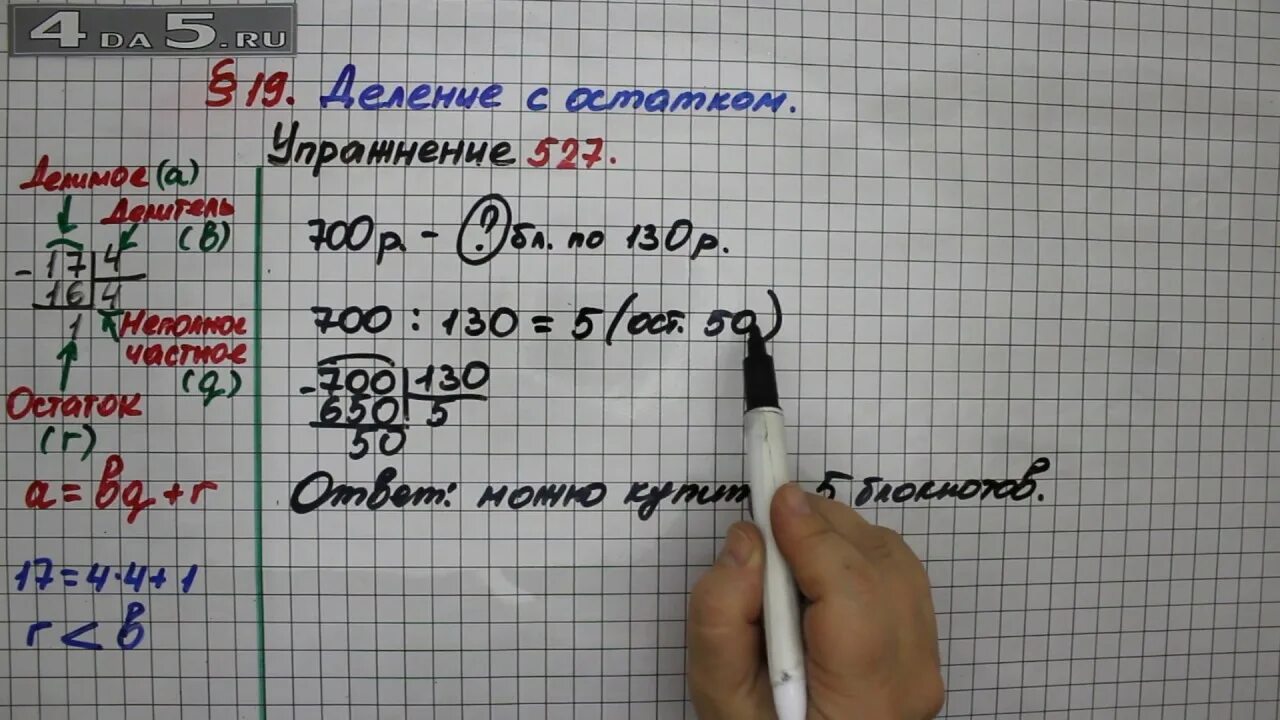 4DA5.RU
§ 19. Деление с остатком.
Упражнение 527.
Делимое (а)
Делитель
(в)
- 17 | 4
16 | 4
1
Неполное
частное
(q)
Остаток
(r)
a = bq + r
17 = 4 · 4 + 1
r < b
700 р. - ? бл. по 130 р.
700 : 130 = 5 (ост. 50)
- 700 | 130
650 | 5
50
Ответ: можно купит 5 блокнотов.